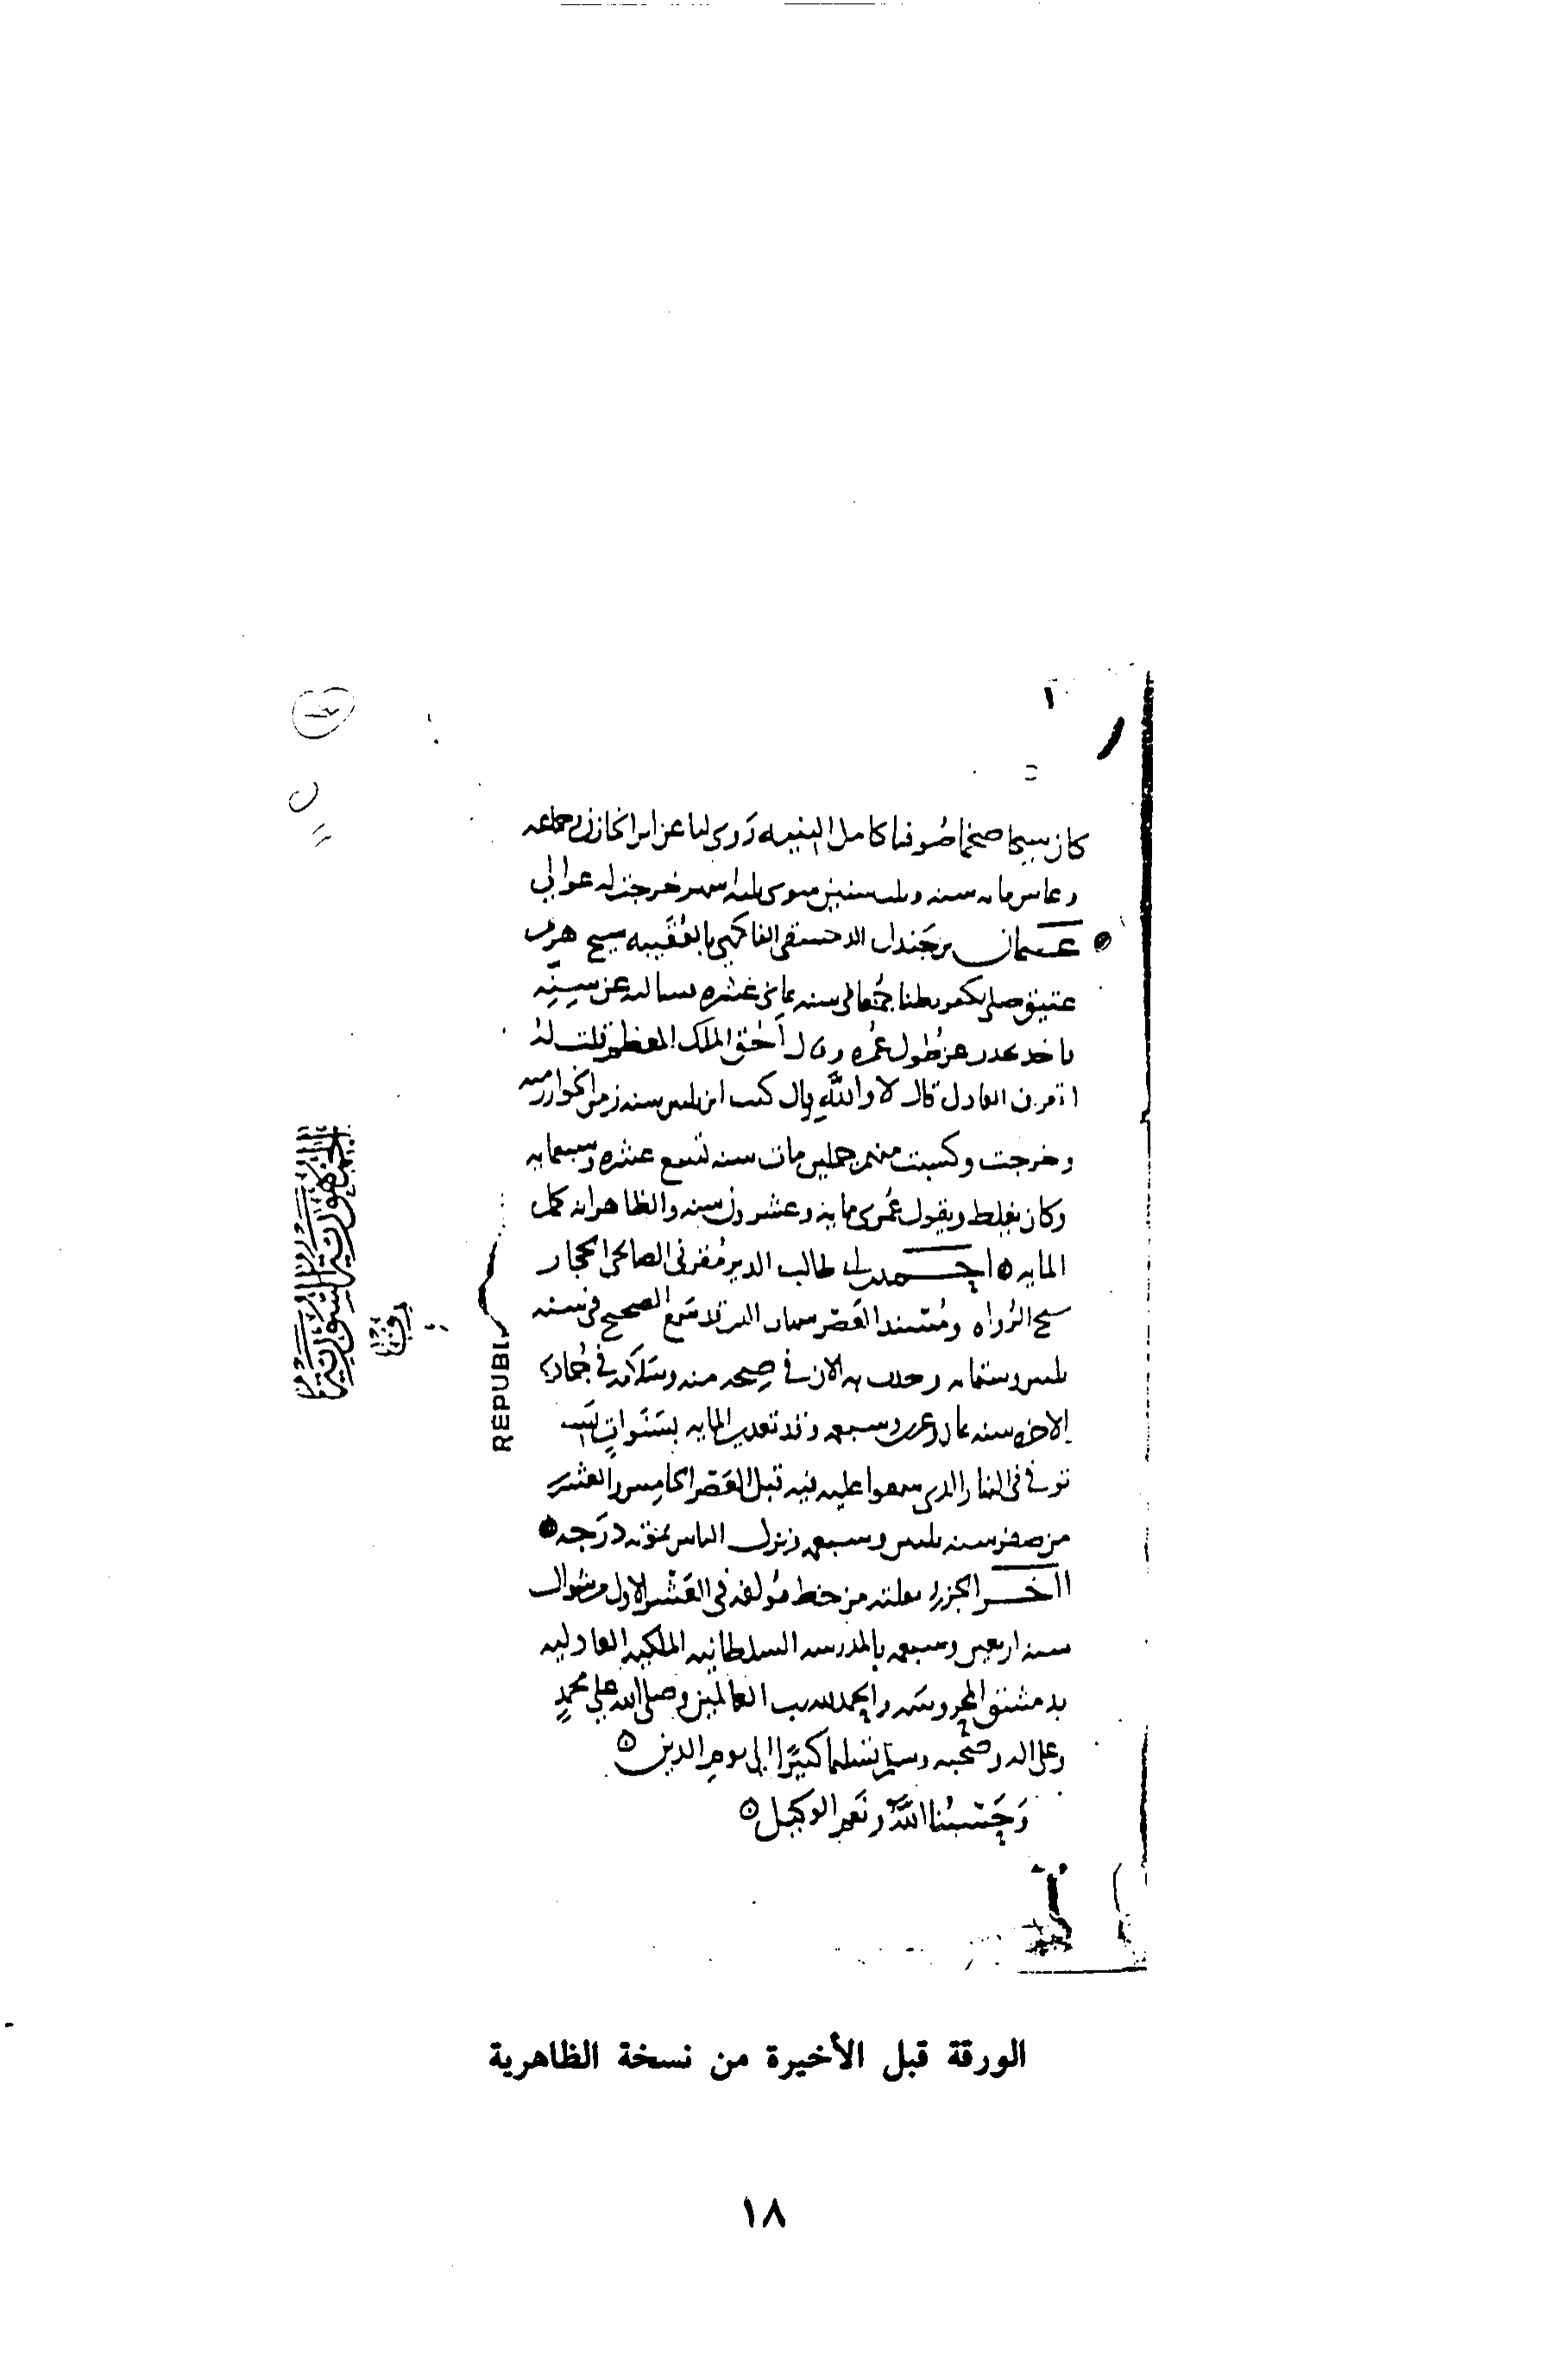 كان شيخا ضخما صوفيا كامل البنيه روى لنا عن ابن الخازن وجماعه
وعاش مايه سنه وثلث سنين سوى ثلثه اشهر خرجت له عوالي
عثمان بن جندل الدمشقي الفاكهي بالعقيبه شيخ هرم
عتيق صلى بكفر بطنا جمعا في سنه ثماني عشره فسالته عن سنه
فاخذ يحدث عن طول عمره وقال الحق الملك المعظم قلت له
اتعرف العادل قال لا والله قال كنت ابن ثلثين سنه زمن الخوارزميه
وخرجت وكسبت منهم جملين مات سنه تسع عشره وسبعمايه
وكان يغلط ويقول عمري مايه وعشرون سنه والظاهر انه كمل
المايه احمد بن ابي طالب الدير مقرني الصالحي الحجار
شيخ الرواه ومسند العصر شهاب الدين سمع الصحيح في سنه
ثلثين وستمايه وحدث به الان في صحه منه وسلامه في جمادى
الاخره سنه ثمان وعشرين وسبعمايه وقد تعدى المايه بسنوات
توفي في النهار الذي سمعوا عليه فيه قبل العصر الخامس والعشرين
من صفر سنه ثلثين وسبعمايه ونزل الناس بموته درجه
اخر الجزء نقلته من خط مؤلفه في العشر الاول من شوال
سنه اربعين وسبعمايه بالمدرسه السلطانيه الملكيه العادليه
بدمشق المحروسه والحمد لله رب العالمين وصلى الله على محمد
وعلى اله وصحبه وسلم تسليما كثيرا الى يوم الدين
وحسبنا الله ونعم الوكيل
الجمهورية العربية السورية
REPUBL
الورقة قبل الأخيرة من نسخة الظاهرية
١٨